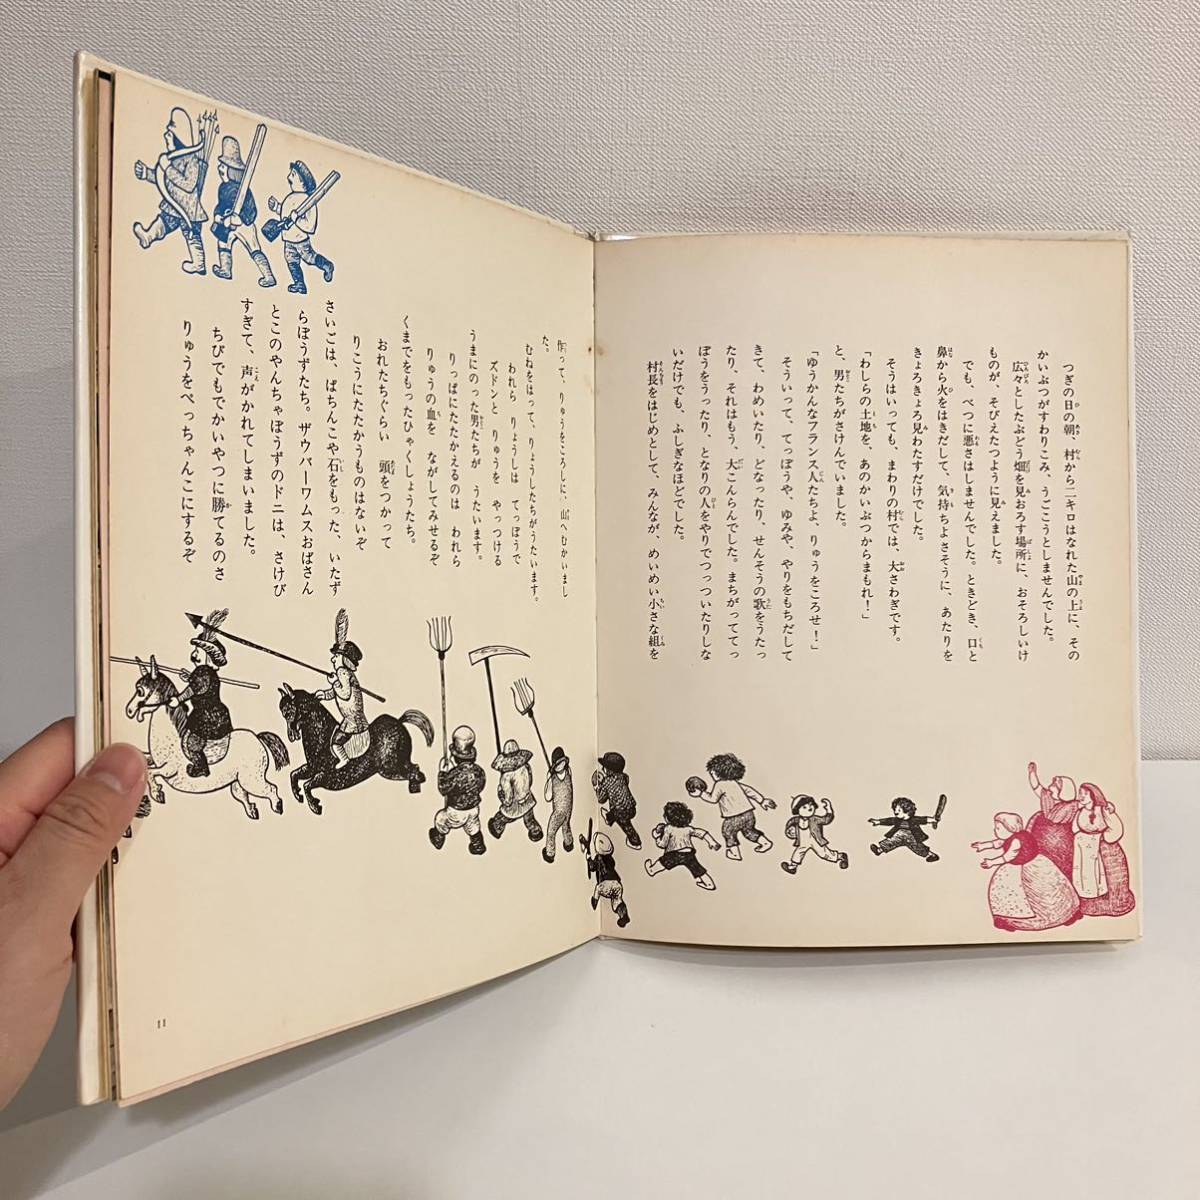 つぎの日の朝、村から二キロはなれた山の上に、その
かいぶつがすわりこみ、うごこうとしませんでした。
広々としたぶどう畑を見おろす場所に、おそろしいけ
ものが、そびえたつように見えました。
でも、べつに悪さはしませんでした。ときどき、口と
鼻から火をはきだして、気持ちよさそうに、あたりを
きょろきょろ見わたすだけでした。
そうはいっても、まわりの村では、大さわぎです。
「わしらの土地を、あのかいぶつからまもれ!」
と、男たちがさけんでいました。
「ゆうかんなフランス人たちよ、りゅうをころせ!」
そういって、てっぽうや、ゆみや、やりをもちだして
きて、わめいたり、どなったり、せんそうの歌をうたっ
たり、それはもう、大こんらんでした。まちがっててっ
ぽうをうったり、となりの人をやりでつっついたりしな
いだけでも、ふしぎなほどでした。
村長をはじめとして、みんなが、めいめい小さな組を
作って、りゅうをころしに、山へむかいまし
た。
むねをはって、りょうしたちがうたいます。
われら りょうしは てっぽうで
ズドンと りゅうを やっつける
うまにのった男たちが うたいます。
りっぱにたたかえるのは われら
りゅうの血を ながしてみせるぞ
くまでをもったひゃくしょうたち。
おれたちぐらい 頭をつかって
りこうにたたかうものはないぞ
さいごは、ぱちんこや石をもった、いたず
らぼうずたち。ザウパーワムスおばさん
とこのやんちゃぼうずのドニは、さけび
すぎて、声がかれてしまいました。
ちびでもでかいやつに勝てるのさ
りゅうをぺっちゃんこにするぞ
11